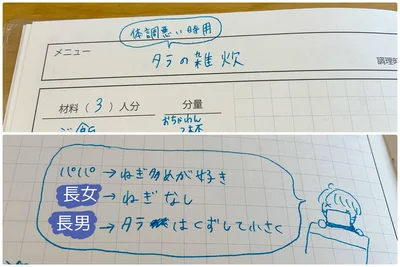 体調悪い時用
メニュー タラの雑炊
調理
材料（3）人分 分量
ご飯 おちゃわん
パパ→ねぎ多めが好き
長女→ねぎなし
長男→タラはくずして小さく